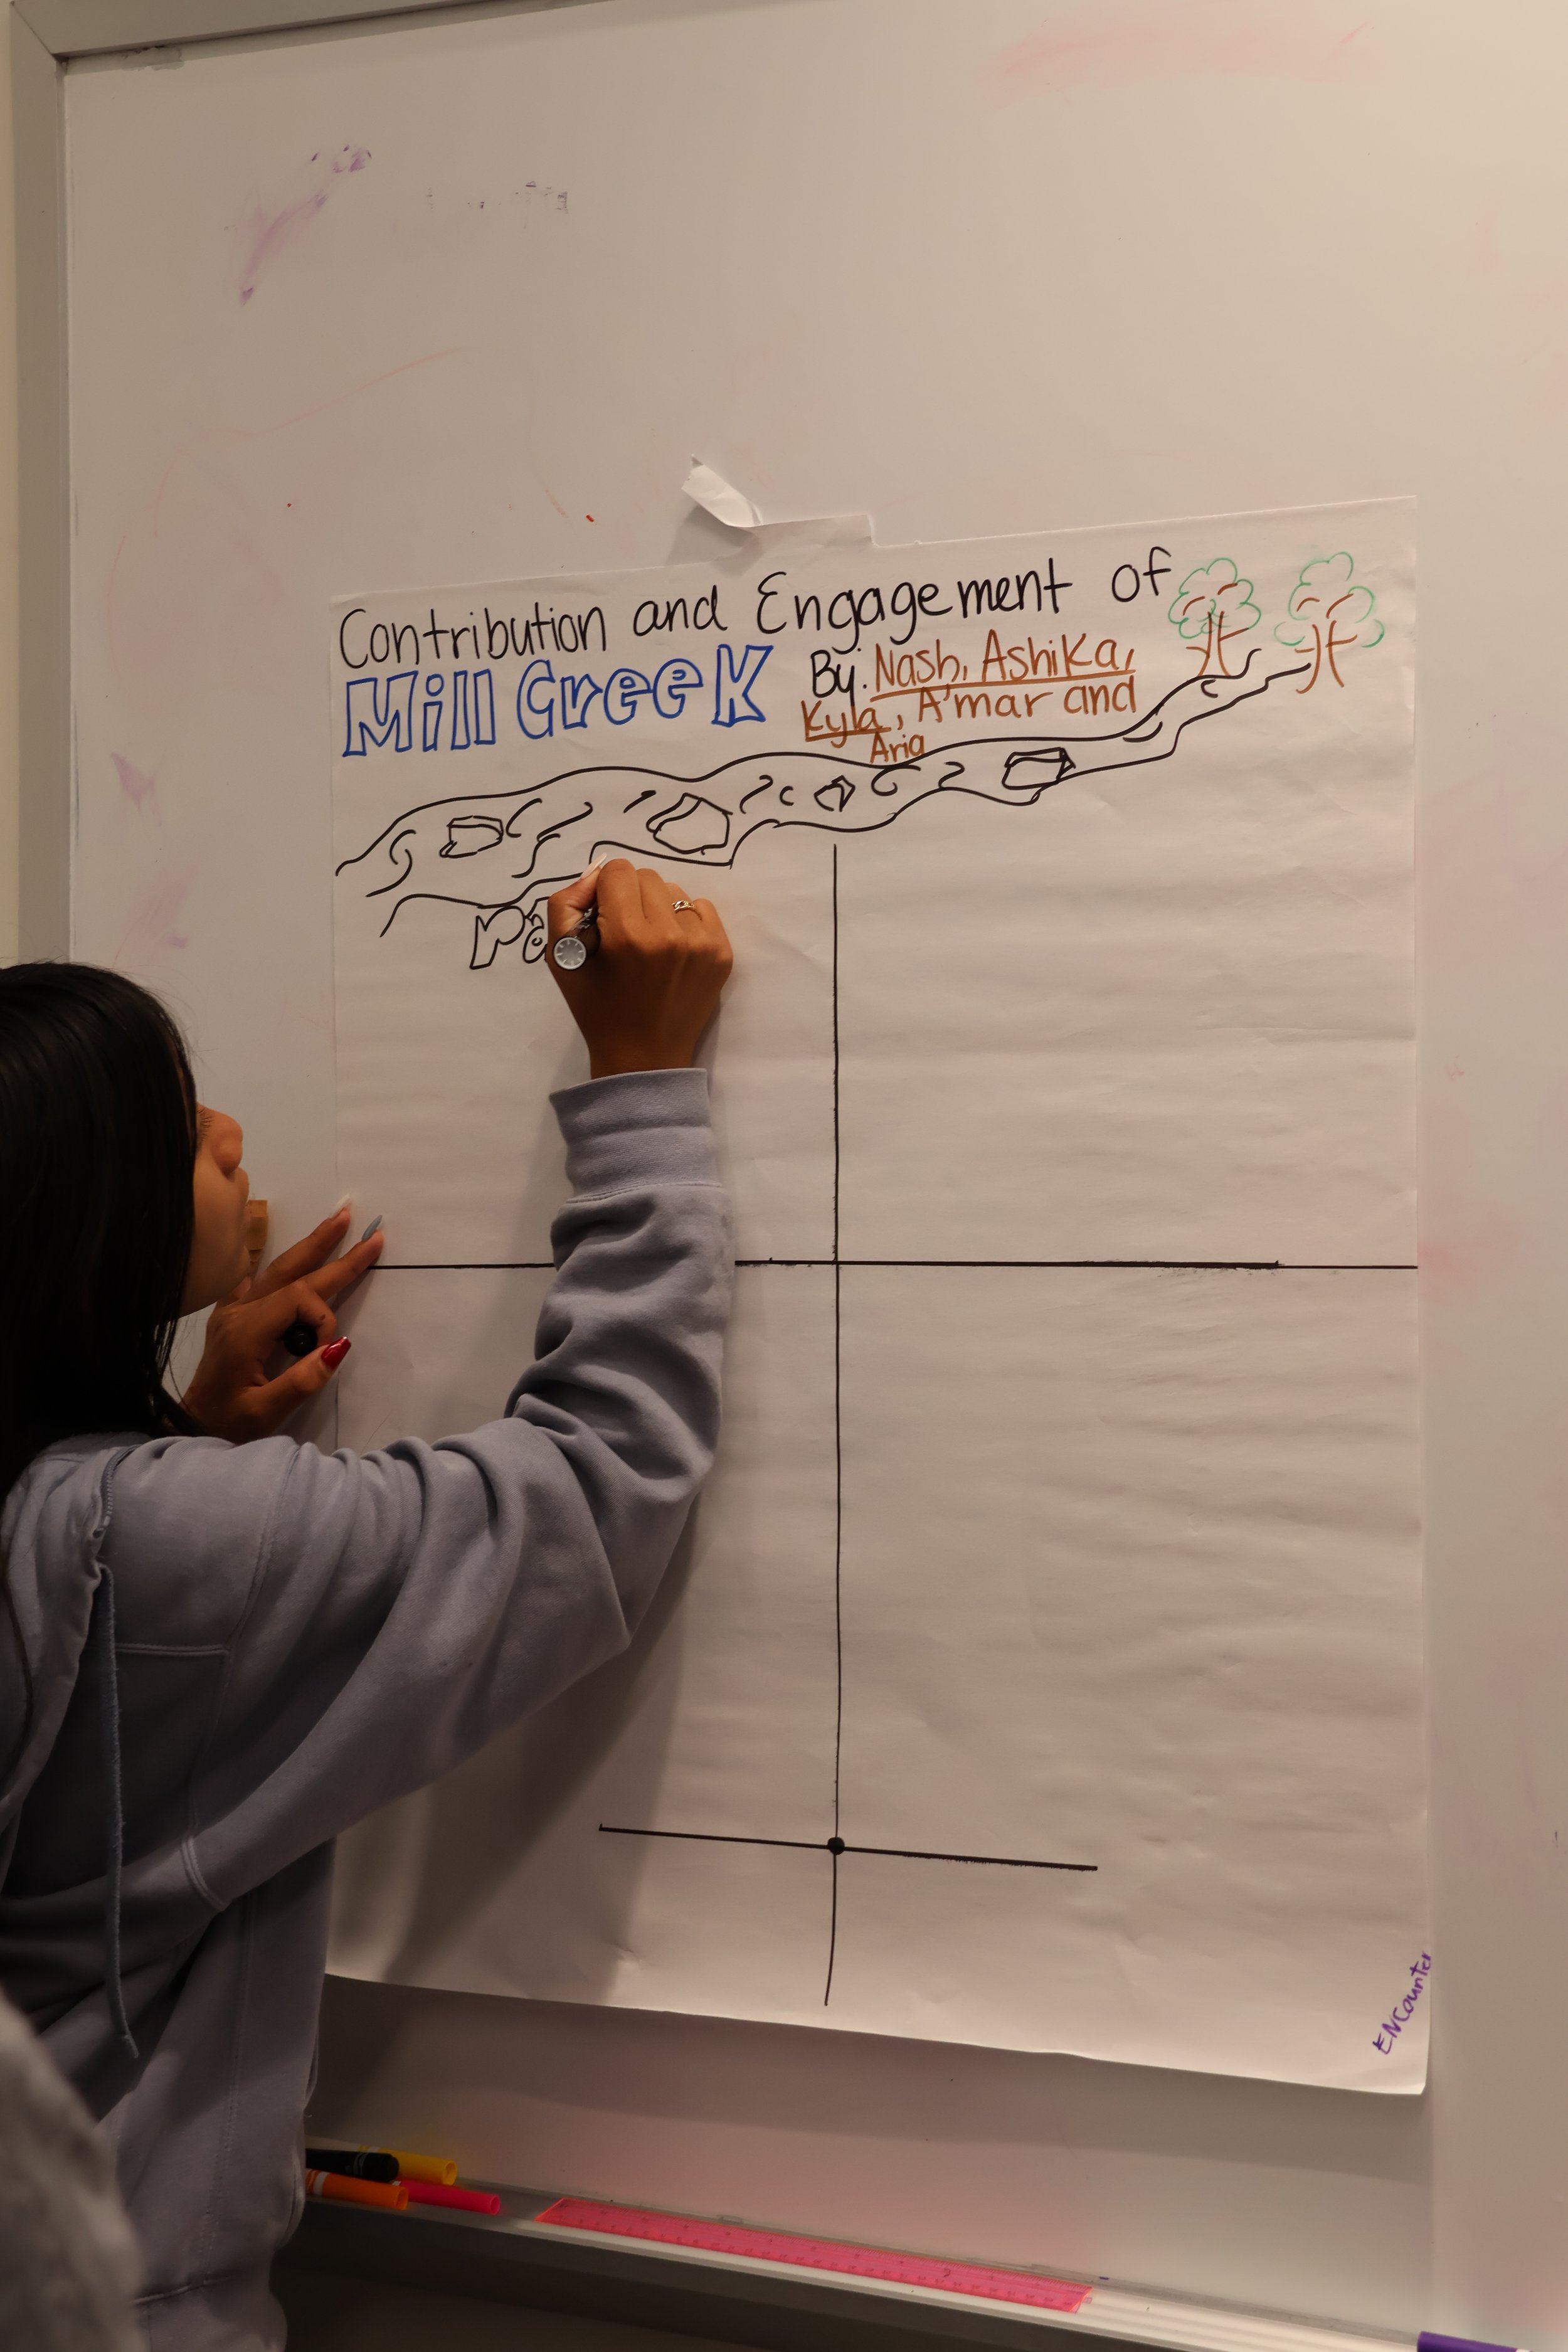 Contribution and Engagement of
Mill Creek By: Nash, Ashika,
Kyla, A'mar and
Aria
ENCounter